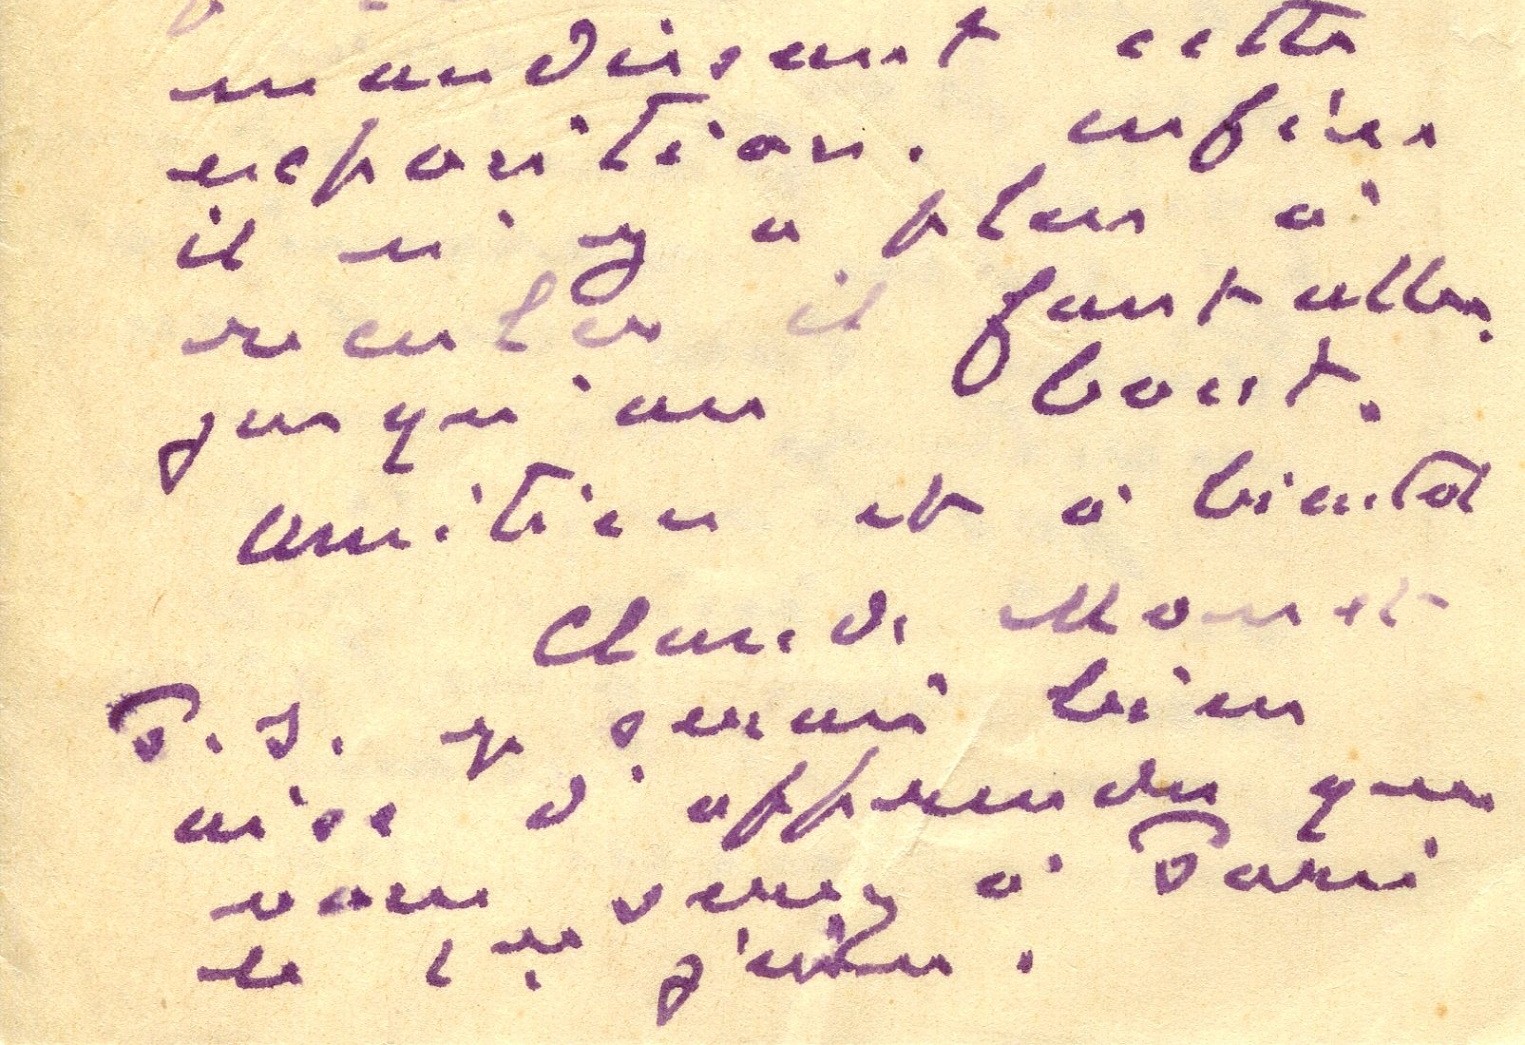 maudissant cette
exposition. enfin
il n'y a plus à
reculer il faut aller
jusqu'au bout.
amitiés et à bientôt
Claude Monet
P.S. je serais bien
aise d'apprendre que
vous serez à Paris
le 1er juin.